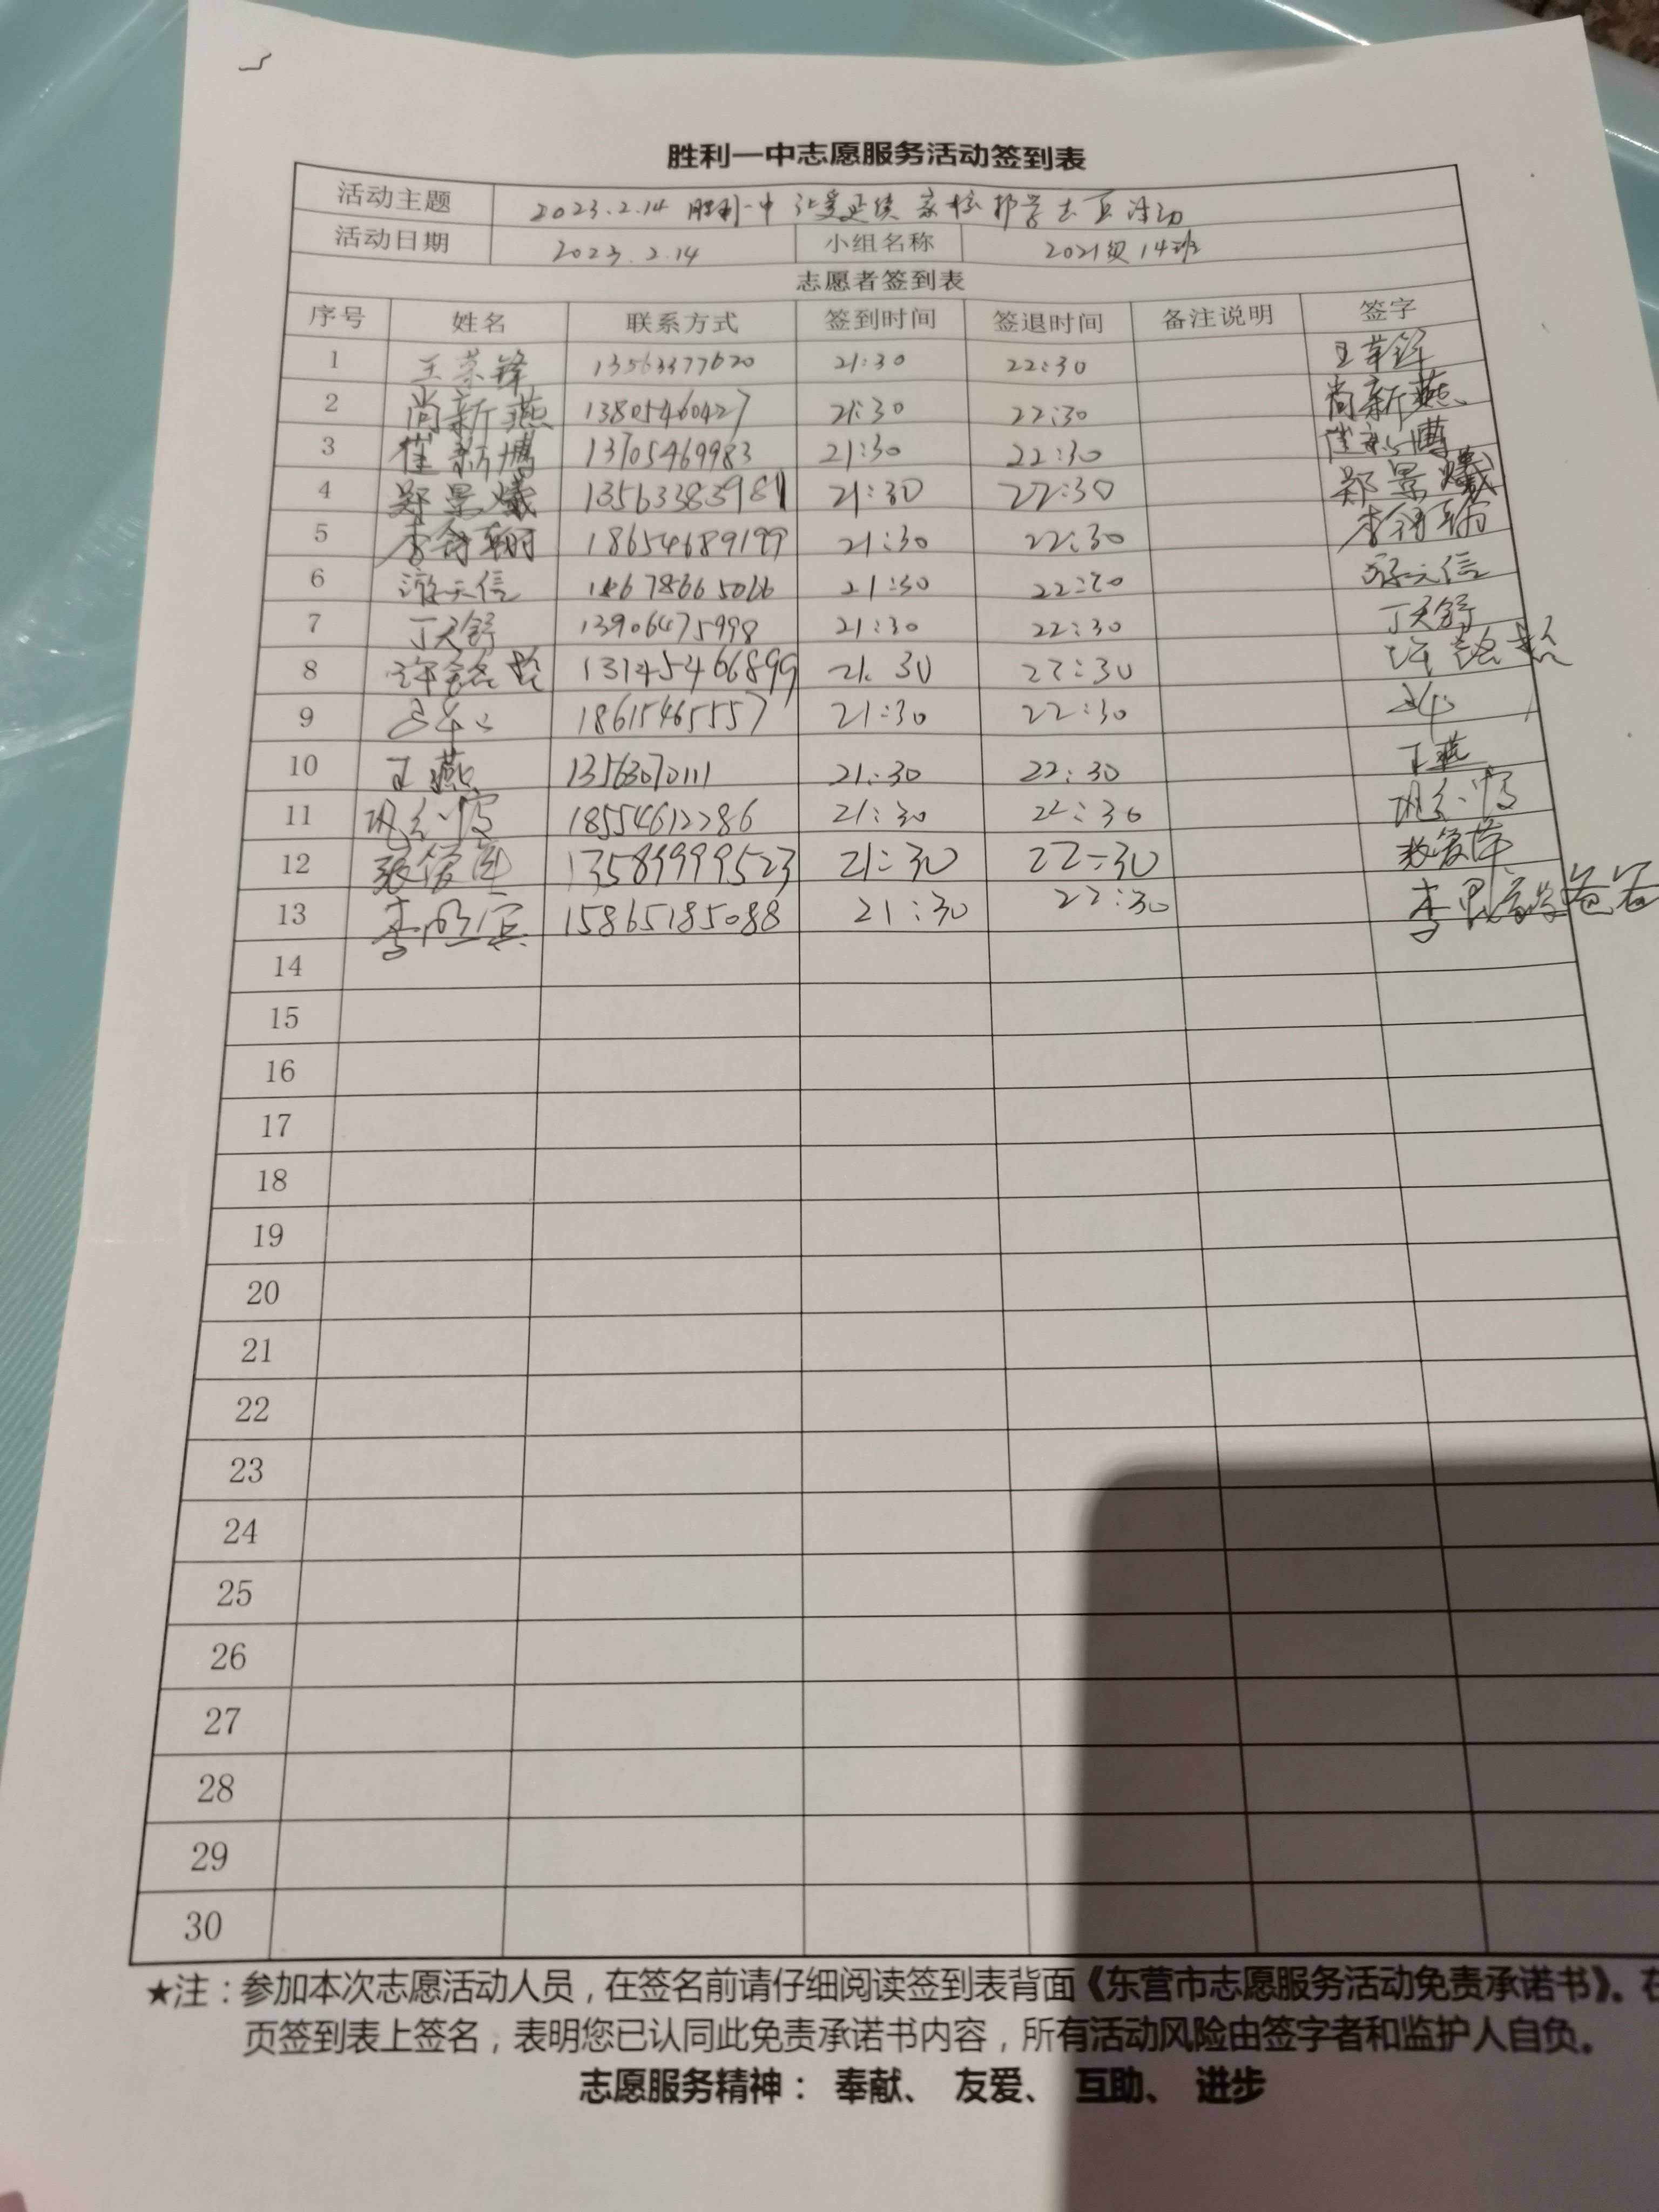 胜利一中志愿服务活动签到表
活动主题 2023.2.14 胜利一中 让爱延续 家校 活动
活动日期 2023.2.14 小组名称 2021级14班
志愿者签到表
序号 姓名 联系方式 签到时间 签退时间 备注说明 签字
1 王荣锋 13563377620 21:30 22:30 王荣锋
2 尚新燕 13805460427 21:30 22:30 尚新燕
3 崔新博 13705469983 21:30 22:30 崔新博
4 郑景曦 13563383981 21:30 22:30 郑景曦
5 李舒翰 18654689199 21:30 22:30 李舒翰
6 游天信 21:30 22:30 游天信
7 丁天舒 13906475998 21:30 22:30 丁天舒
8 许 21:30 22:30 许
9 18615465557 21:30 22:30
10 王燕 13563070111 21:30 22:30 王燕
11 18554612286 21:30 22:30
12 张 13589999523 21:30 22:30 张
13 李 15865185088 21:30 22:30 李 爸爸
14
15
16
17
18
19
20
21
22
23
24
25
26
27
28
29
30
★注：参加本次志愿活动人员，在签名前请仔细阅读签到表背面《东营市志愿服务活动免责承诺书》。在
页签到表上签名，表明您已认同此免责承诺书内容，所有活动风险由签字者和监护人自负。
志愿服务精神： 奉献、 友爱、 互助、 进步